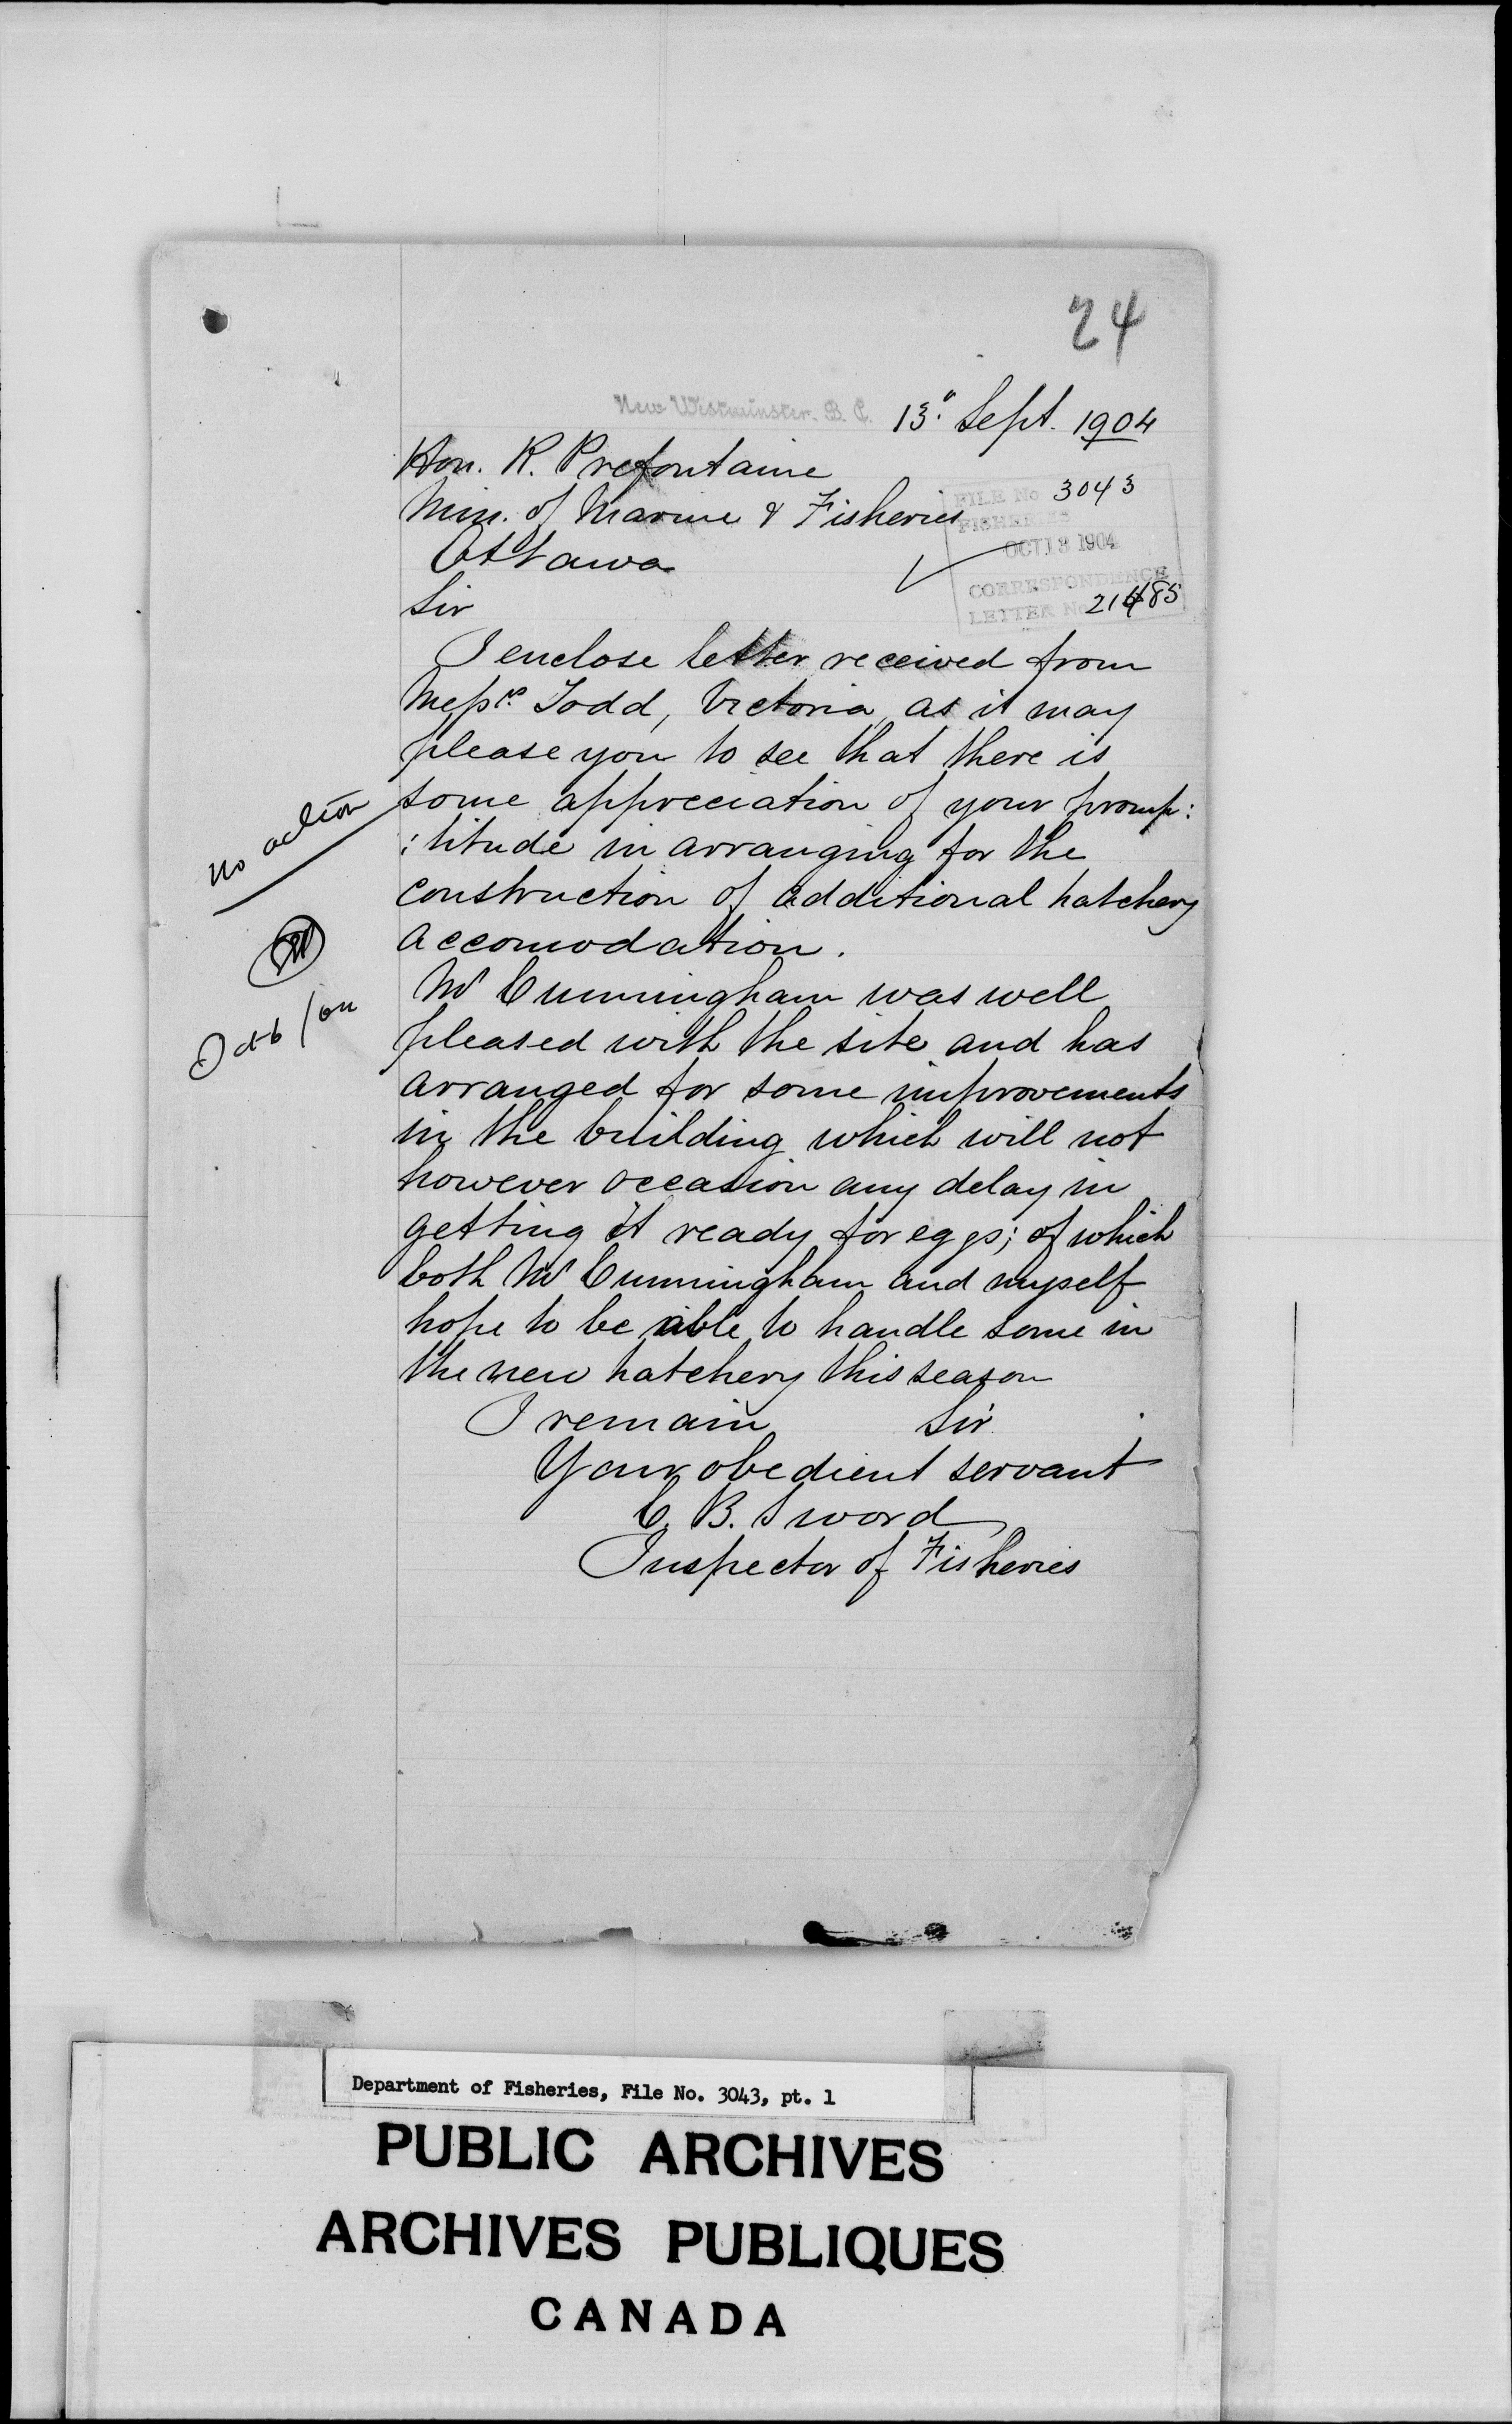 24
New Westminster. B. C. 13" Sept. 1904
Hon. R. Prefontaine
Min. of Marine & Fisheries
Ottawa
Sir
FILE No 3043
FISHERIES
OCT 13 1904
CORRESPONDENCE
LETTER No 21485
I enclose letter received from
Messrs. Todd, Victoria, as it may
please you to see that there is
some appreciation of your promp:
:titude in arranging for the
construction of additional hatchery
accomodation.
Mr Cunningham was well
pleased with the site and has
arranged for some improvements
in the building which will not
however occasion any delay in
getting it ready for eggs; of which
both Mr Cunningham and myself
hope to be able to handle some in
the new hatchery this season
I remain Sir
Your obedient servant
C. B. Sword
Inspector of Fisheries
No action
Department of Fisheries, File No. 3043, pt. 1
PUBLIC ARCHIVES
ARCHIVES PUBLIQUES
CANADA